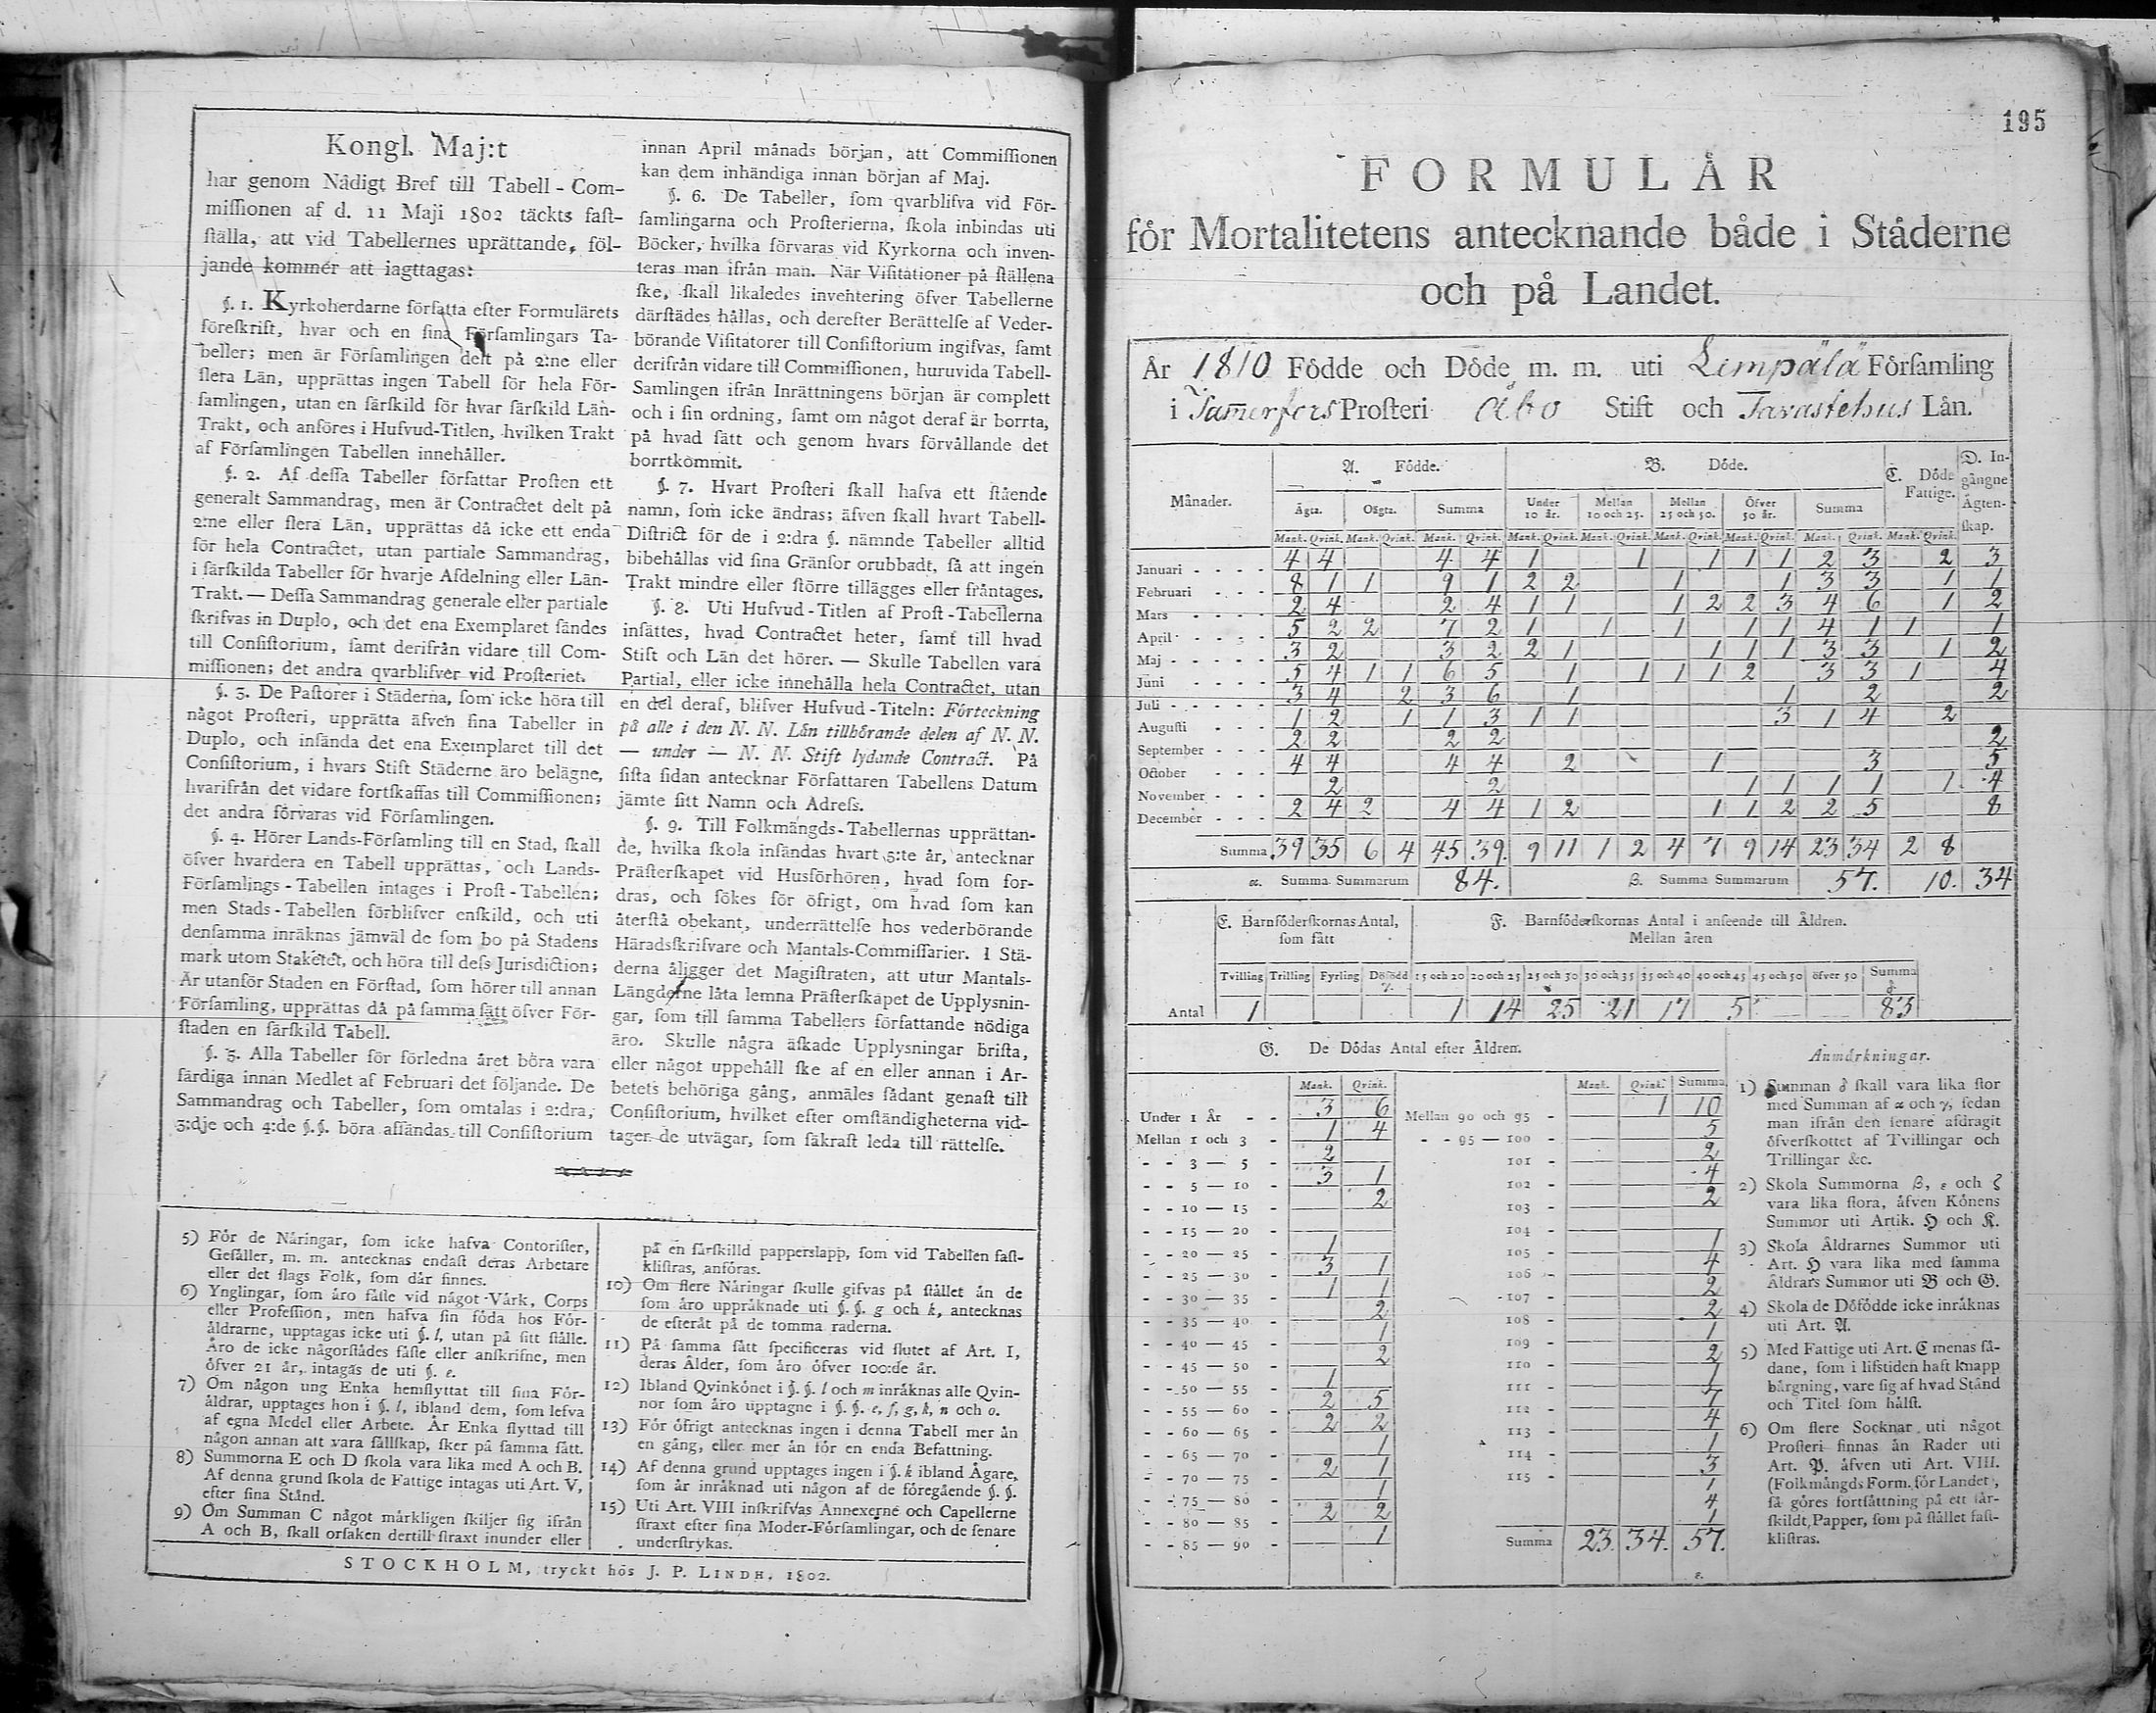 Kongl. Maj:t
har genom Nådigt Bref till Tabell-Com-
miſſionen af d. 11 Maji 1802 täckts faſt-
ſtälla, att vid Tabellernes uprättande, föl-
jande kommer att iagttagas:
§. 1. Kyrkoherdarne författa efter Formulärets
föreſkrift, hvar och en ſina Förſamlingars Ta-
beller; men är Förſamlingen delt på 2:ne eller
flera Län, upprättas ingen Tabell för hela För-
ſamlingen, utan en ſärſkild för hvar ſärſkild Län-
Trakt, och anföres i Hufvud-Titlen, hvilken Trakt
af Förſamlingen Tabellen innehåller.
§. 2. Af deſſa Tabeller författar Proſten ett
generalt Sammandrag, men är Contractet delt på
2:ne eller flera Län, upprättas då icke ett enda
för hela Contractet, utan partiale Sammandrag,
i ſärſkilda Tabeller för hvarje Afdelning eller Län-
Trakt. — Deſſa Sammandrag generale eller partiale
ſkrifvas in Duplo, och det ena Exemplaret ſändes
till Conſiſtorium, ſamt derifrån vidare till Com-
miſſionen; det andra qvarblifver vid Proſteriet.
§. 3. De Paſtorer i Städerna, ſom icke höra till
något Proſteri, upprätta äfven ſina Tabeller in
Duplo, och inſända det ena Exemplaret till det
Conſiſtorium, i hvars Stift Städerne äro belägne,
hvarifrån det vidare fortſkaffas till Commiſſionen;
det andra förvaras vid Förſamlingen.
§. 4. Hörer Lands-Förſamling till en Stad, ſkall
öfver hvardera en Tabell upprättas, och Lands-
Förſamlings-Tabellen intages i Proſt-Tabellen;
men Stads-Tabellen förblifver enſkild, och uti
denſamma inräknas jämväl de ſom bo på Stadens
mark utom Staketet, och höra till deſs Jurisdiction;
Är utanför Staden en Förſtad, ſom hörer till annan
Förſamling, upprättas då på ſamma ſätt öfver För-
ſtaden en ſärſkild Tabell.
§. 5. Alla Tabeller för förledna året böra vara
färdiga innan Medlet af Februari det följande. De
Sammandrag och Tabeller, ſom omtalas i 2:dra,
3:dje och 4:de §.§. böra afſändas till Conſiſtorium
innan April månads början, att Commiſſionen
kan dem inhändiga innan början af Maj.
§. 6. De Tabeller, ſom qvarblifva vid För-
ſamlingarna och Proſterierna, ſkola inbindas uti
Böcker, hvilka förvaras vid Kyrkorna och inven-
teras man ifrån man. När Viſitationer på ſtällena
ſke, ſkall likaledes inventering öfver Tabellerne
därſtädes hållas, och derefter Berättelſe af Veder-
börande Viſitatorer till Conſiſtorium ingifvas, ſamt
derifrån vidare till Commiſſionen, huruvida Tabell-
Samlingen ifrån Inrättningens början är complett
och i ſin ordning, ſamt om något deraf är borrta,
på hvad ſätt och genom hvars förvållande det
borrtkommit.
§. 7. Hvart Proſteri ſkall hafva ett ſtående
namn, ſom icke ändras; äfven ſkall hvart Tabell-
Diſtrict för de i 2:dra §. nämnde Tabeller alltid
bibehållas vid ſina Gränſor orubbadt, ſå att ingen
Trakt mindre eller ſtörre tillägges eller fråntages.
§. 8. Uti Hufvud-Titlen af Proſt-Tabellerna
inſättes, hvad Contractet heter, ſamt till hvad
Stift och Län det hörer. — Skulle Tabellen vara
Partial, eller icke innehålla hela Contractet, utan
en del deraf, blifver Hufvud-Titeln: Förteckning
på alle i den N. N. Län tillhörande delen af N. N.
— under — N. N. Stift lydande Contract. På
ſiſta ſidan antecknar Författaren Tabellens Datum
jämte ſitt Namn och Adreſs.
§. 9. Till Folkmängds-Tabellernas upprättan-
de, hvilka ſkola inſändas hvart 5:te år, antecknar
Präſterſkapet vid Husförhören, hvad ſom for-
dras, och ſökes för öfrigt, om hvad ſom kan
återſtå obekant, underrättelſe hos vederbörande
Häradsſkrifvare och Mantals-Commiſſarier. I Stä-
derna åligger det Magiſtraten, att utur Mantals-
Längderne låta lemna Präſterſkapet de Upplysnin-
gar, ſom till ſamma Tabellers författande nödiga
äro. Skulle några äſkade Upplysningar briſta,
eller något uppehåll ſke af en eller annan i Ar-
betets behöriga gång, anmäles ſådant genaſt till
Conſiſtorium, hvilket efter omſtändigheterna vid-
tager de utvägar, ſom ſäkraſt leda till rättelſe.
5) För de Näringar, ſom icke hafva Contoriſter,
Geſäller, m. m. antecknas endaſt deras Arbetare
eller det ſlags Folk, ſom där finnes.
6) Ynglingar, ſom äro fäſte vid något Värk, Corps
eller Profeſſion, men hafva ſin föda hos För-
äldrarne, upptagas icke uti §. l, utan på ſitt ſtälle.
Äro de icke någorſtädes fäſte eller anſkrifne, men
öfver 21 år, intagas de uti §. e.
7) Om någon ung Enka hemflyttat till ſina För-
äldrar, upptages hon i §. l, ibland dem, ſom lefva
af egna Medel eller Arbete. Är Enka flyttad till
någon annan att vara ſällſkap, ſker på ſamma ſätt.
8) Summorna E och D ſkola vara lika med A och B.
Af denna grund ſkola de Fattige intagas uti Art. V,
efter ſina Stånd.
9) Om Summan C något märkligen ſkiljer ſig ifrån
A och B, ſkall orſaken dertill ſtraxt inunder eller
på en ſärſkilld papperslapp, ſom vid Tabellen faſt-
kliſtras, anföras.
10) Om flere Näringar ſkulle gifvas på ſtället än de
ſom äro uppräknade uti §. §. g och k, antecknas
de efteråt på de tomma raderna.
11) På ſamma ſätt ſpecificeras vid ſlutet af Art. I,
deras Ålder, ſom äro öfver 100:de år.
12) Ibland Qvinkönet i §. §. l och m inräknas alle Qvin-
nor ſom äro upptagne i §. §. e, f, g, k, n och o.
13) För öfrigt antecknas ingen i denna Tabell mer än
en gång, eller mer än för en enda Befattning.
14) Af denna grund upptages ingen i §. k ibland Ägare,
ſom är inräknad uti någon af de föregående §. §.
15) Uti Art. VIII inſkrifvas Annexerne och Capellerne
ſtraxt efter ſina Moder-Förſamlingar, och de ſenare
underſtrykas.
STOCKHOLM, tryckt hos J. P. LINDH, 1802.
195
FORMULÅR
för Mortalitetens antecknande både i Ståderne
och på Landet.
År 1810 Födde och Döde m. m. uti Lempälä Förſamling
i Tamerfors Proſteri Åbo Stift och Tavastehus Län.
Månader. A. Födde. B. Döde. C. Döde Fattige. D. Ingångne Ägtenſkap.
Ägta. Oägta. Summa Under 10 år. Mellan 10 och 25. Mellan 25 och 50. Öfver 50 år. Summa
Mank. Qvink. Mank. Qvink. Mank. Qvink. Mank. Qvink. Mank. Qvink. Mank. Qvink. Mank. Qvink. Mank. Qvink. Mank. Qvink.
Januari 4 4 4 4 1 1 1 1 1 2 3 2 3
Februari 8 1 1 9 1 2 2 1 1 3 3 1 1
Mars 2 4 2 4 1 1 1 2 2 3 4 6 1 2
April 5 2 2 7 2 1 1 1 1 1 4 1 1 1
Maj 3 2 3 2 2 1 1 1 1 3 3 1 2
Juni 5 4 1 1 6 5 1 1 1 1 2 3 3 1 4
Juli 3 4 2 3 6 1 1 2 2
Auguſti 1 2 1 1 3 1 1 3 1 4 2
September 2 2 2 2 2
October 4 4 4 4 2 1 3 5
November 2 2 1 1 1 1 1 4
December 2 4 2 4 4 1 2 1 1 2 2 5 8
Summa 39 35 6 4 45 39. 9 11 1 2 4 7 9 14 23 34 2 8
α. Summa Summarum 84. β. Summa Summarum 57. 10. 34
E. Barnföderſkornas Antal, ſom fått
F. Barnföderſkornas Antal i anſeende till Åldren.
Mellan åren
Tvilling Trilling Fyrling Döfödd γ. 15 och 20 20 och 25 25 och 30 30 och 35 35 och 40 40 och 45 45 och 50 öfver 50 Summa δ.
Antal 1 1 14 25 21 17 5 83
G. De Dödas Antal efter Åldren.
Mank. Qvink. Mank. Qvink. Summa
Under 1 År 3 6 Mellan 90 och 95 1 10
Mellan 1 och 3 1 4 95 — 100 5
3 — 5 2 101 2
5 — 10 3 1 102 4
10 — 15 2 103 2
15 — 20 104
20 — 25 1 105 1
25 — 30 3 1 106 4
30 — 35 1 1 107 2
35 — 40 2 108 2
40 — 45 1 109 1
45 — 50 2 110 2
50 — 55 1 111 1
55 — 60 2 5 112 7
60 — 65 2 2 113 4
65 — 70 1 114 1
70 — 75 2 1 115 3
75 — 80 1 1
80 — 85 2 2 4
85 — 90 1 1
Summa 23. 34. 57.
ε.
Anmärkningar.
1) Summan δ ſkall vara lika ſtor
med Summan af α och γ, ſedan
man ifrån den ſenare afdragit
öfverſkottet af Tvillingar och
Trillingar &c.
2) Skola Summorna β, ε och ζ
vara lika ſtora, äfven Könens
Summor uti Artik. H och K.
3) Skola Åldrarnes Summor uti
Art. H vara lika med ſamma
Åldrars Summor uti B och G.
4) Skola de Döfödde icke inräknas
uti Art. A.
5) Med Fattige uti Art. C menas ſå-
dane, ſom i lifstiden haft knapp
bärgning, vare ſig af hvad Stånd
och Titel ſom hälſt.
6) Om flere Socknar uti något
Proſteri finnas än Rader uti
Art. P. äfven uti Art. VIII.
(Folkmängds Form. för Landet),
ſå göres fortſättning på ett ſär-
ſkildt Papper, ſom på ſtället faſt-
kliſtras.